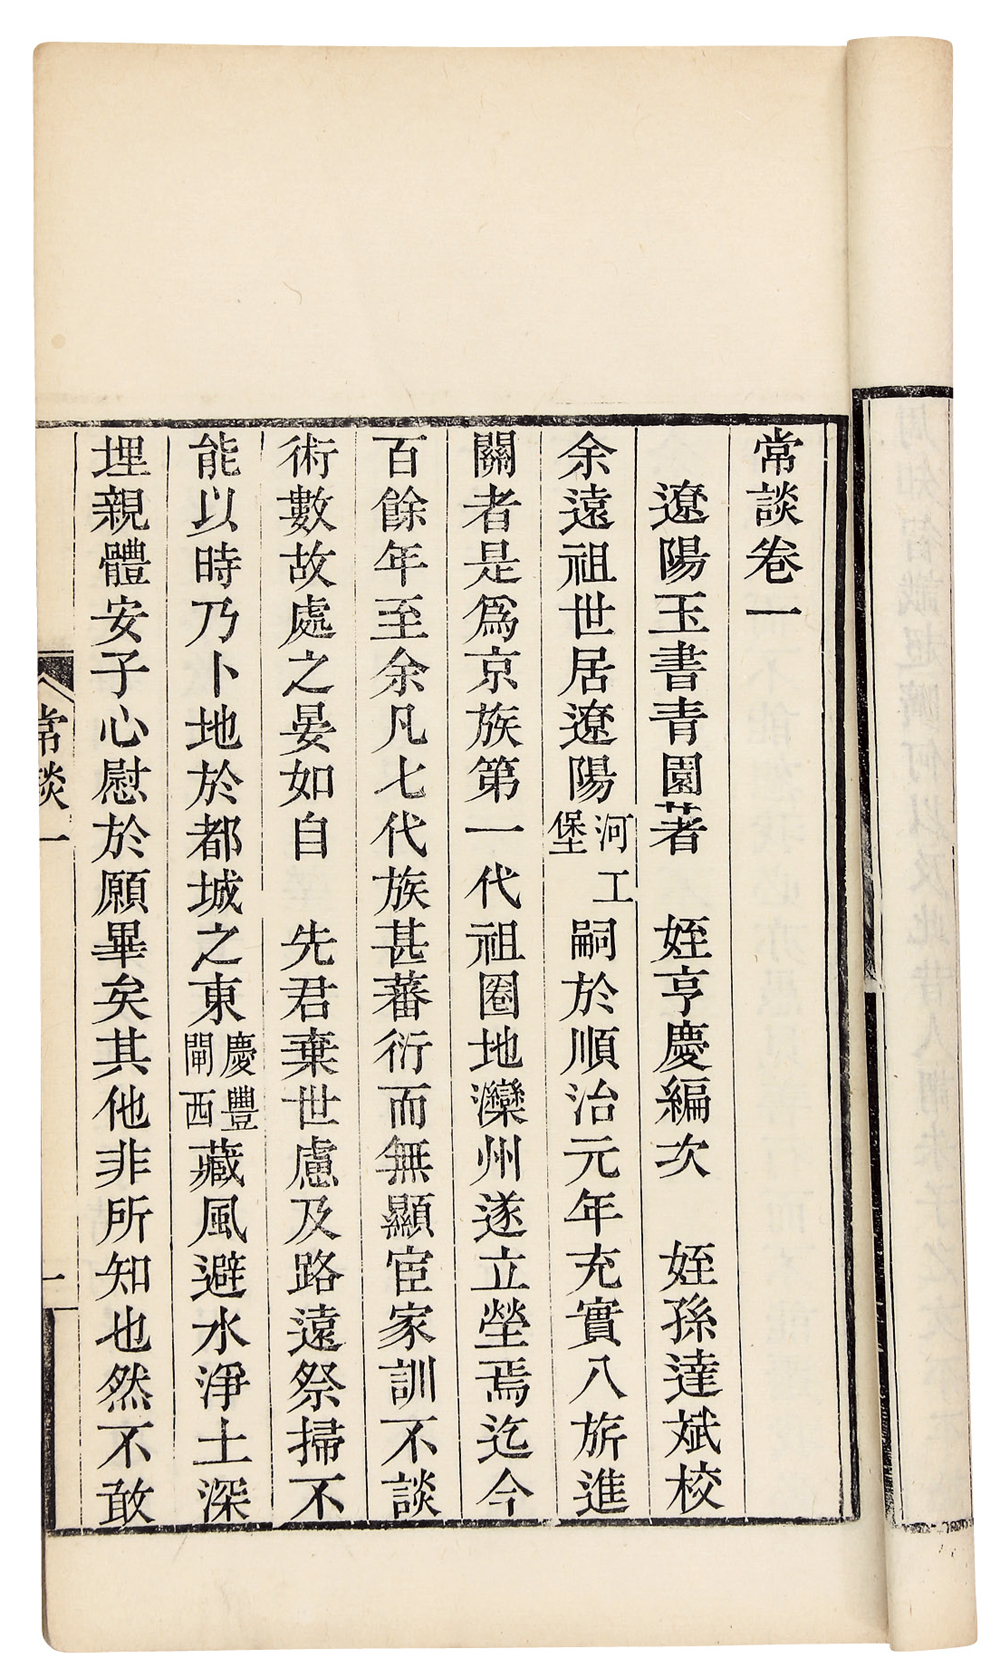 常談卷一
遼陽玉書青園著　姪亨慶編次　姪孫達斌校
余遠祖世居遼陽河工堡嗣於順治元年充實八旂進
關者是爲京族第一代祖圈地灤州遂立塋焉迄今
百餘年至余凡七代族甚蕃衍而無顯宦家訓不談
術數故處之晏如自　先君棄世慮及路遠祭掃不
能以時乃卜地於都城之東慶豐閘西藏風避水淨土深
埋親體安子心慰於願畢矣其他非所知也然不敢
常談一
一